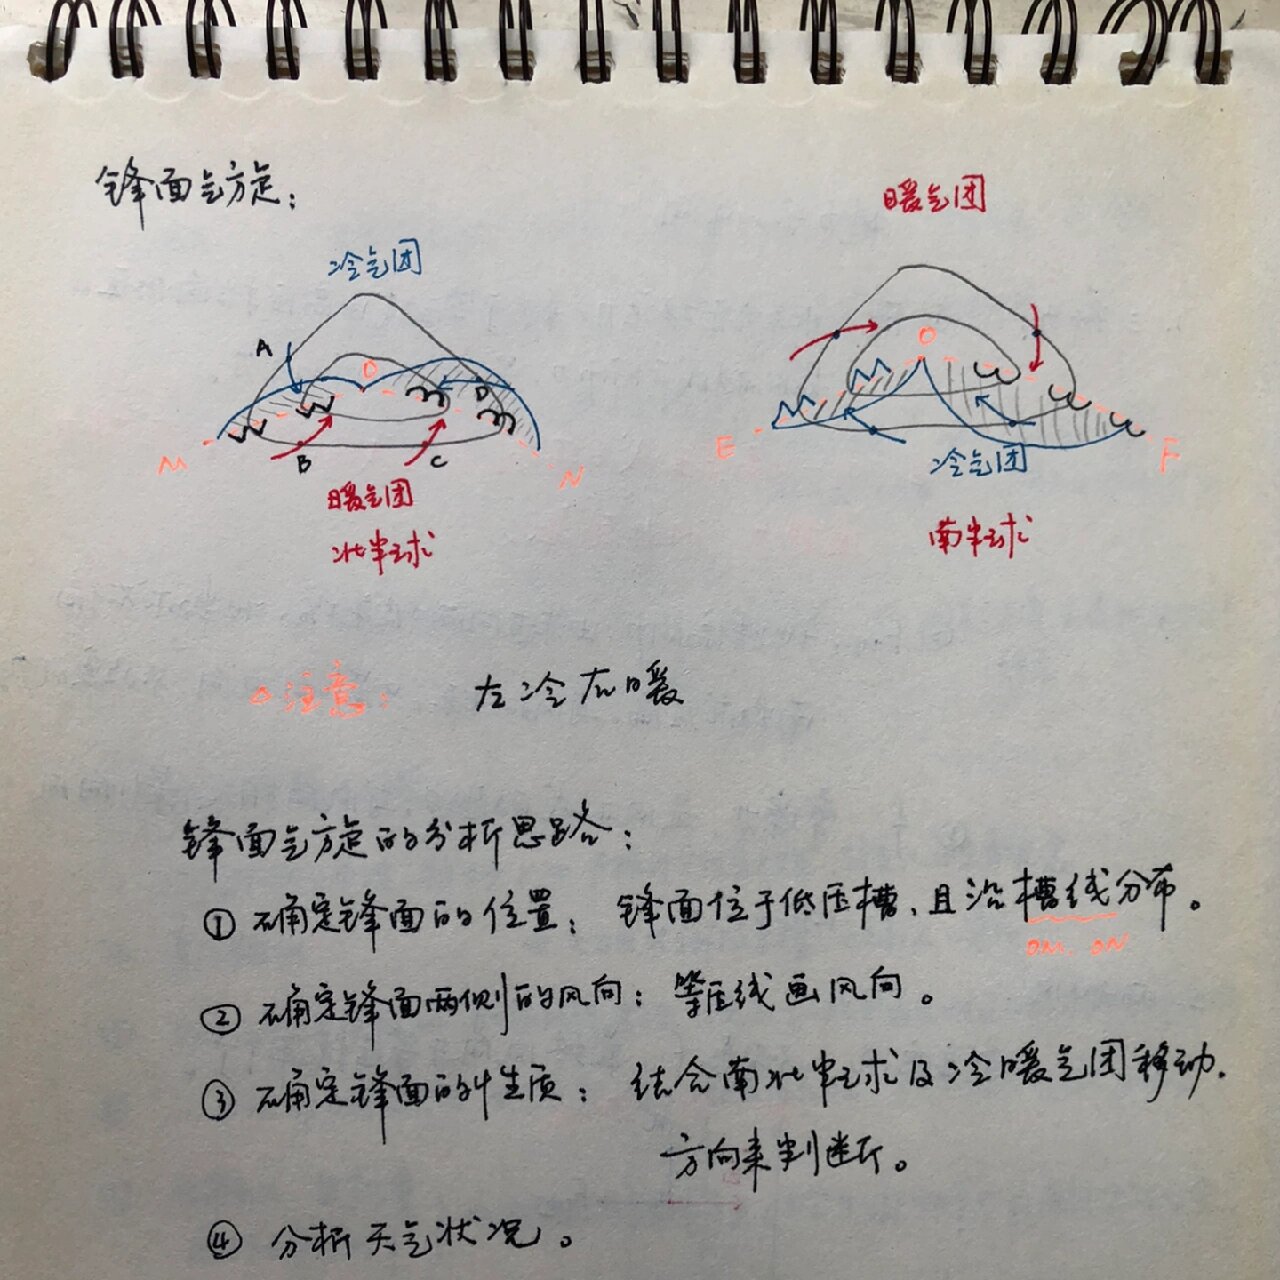 锋面气旋：
暖气团
冷气团
A
O
D
M
B
C
N
暖气团
北半球
O
E
F
冷气团
南半球
注意：
左冷右暖
锋面气旋的分析思路：
① 确定锋面的位置：锋面位于低压槽、且沿槽线分布。
OM、ON
② 确定锋面两侧的风向：等压线画风向。
③ 确定锋面的性质：结合南北半球及冷暖气团移动.
方向来判断。
④ 分析天气状况。